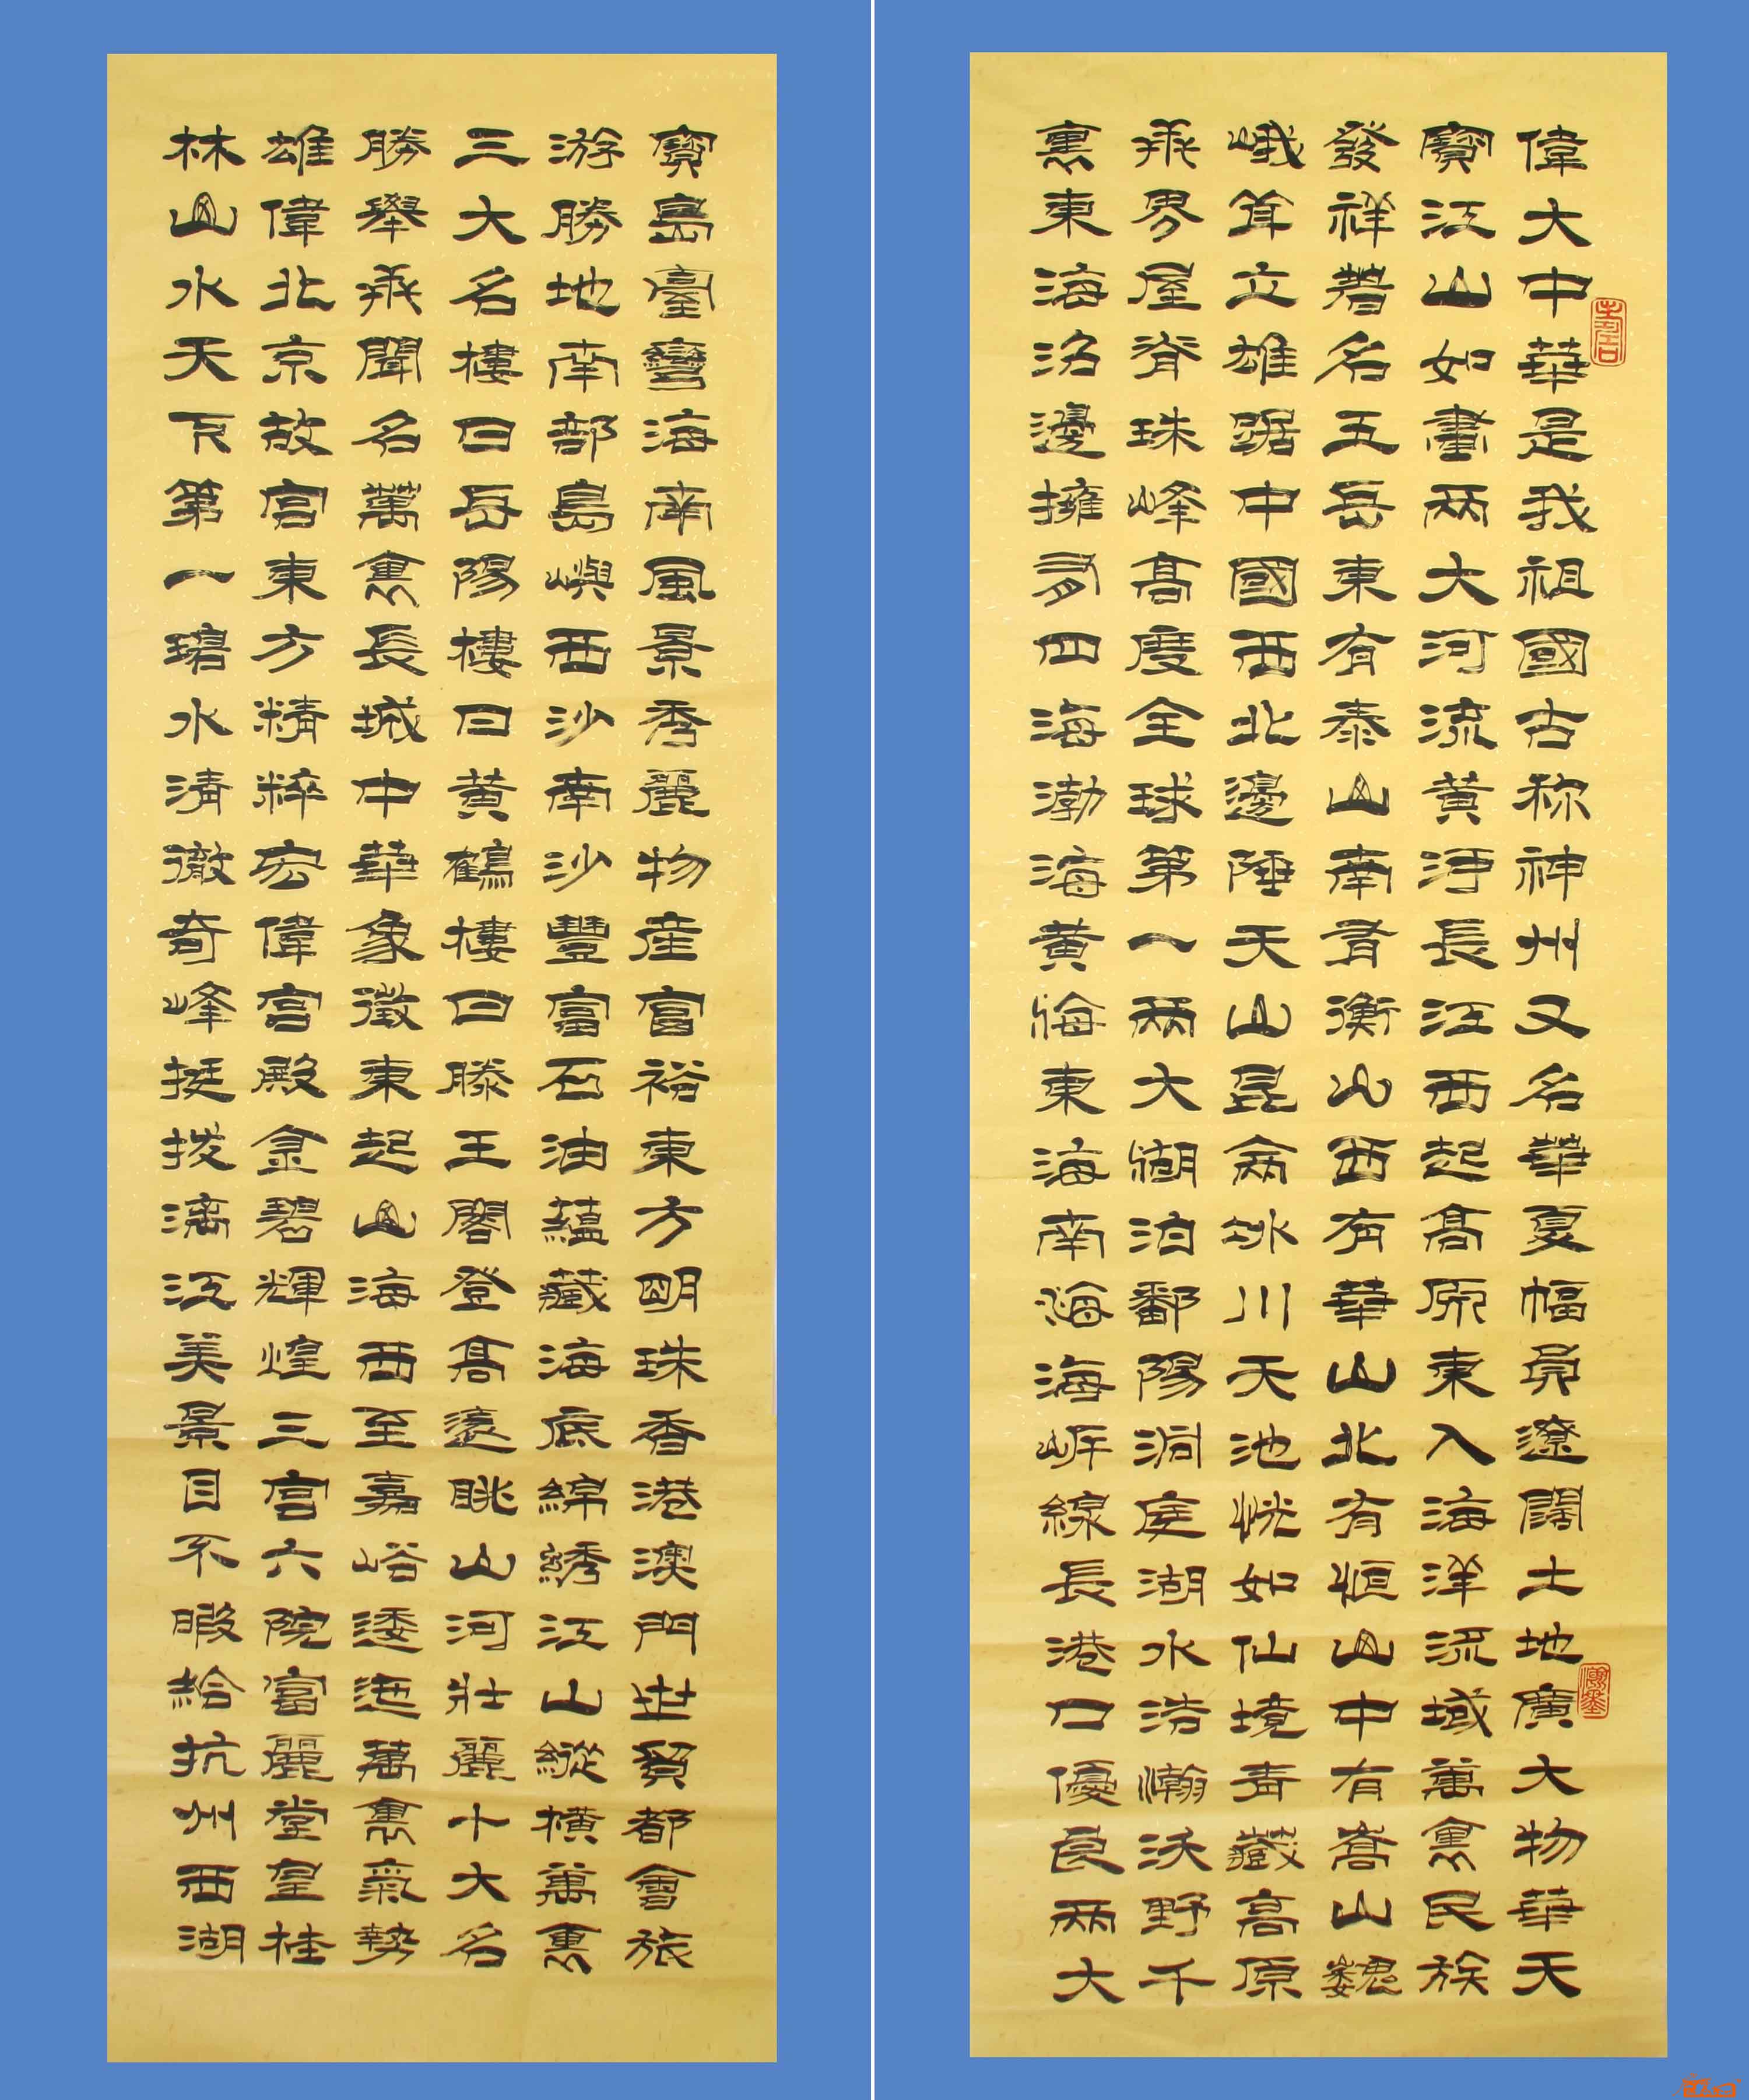 偉大中華是我祖國古称神州又名華夏幅員遼闊土地廣大物華天
寶江山如畫兩大河流黃河長江西起高原東入海洋流域萬裏民族
發祥著名五岳東有泰山南有衡山西有華山北有恒山中有嵩山巍
峨耸立雄踞中國西北邊陲天山昆侖冰川天池恍如仙境青藏高原
世界屋脊珠峰高度全球第一兩大湖泊鄱陽洞庭湖水浩瀚沃野千
裏東海沿邊擁有四海渤海黃海東海南海海岸線長港口優良兩大
寶島臺灣海南風景秀麗物產富裕東方明珠香港澳門世貿都會旅
游勝地南部島嶼西沙南沙豐富石油蘊藏海底綿綉江山縱橫萬裏
三大名樓曰岳陽樓曰黃鶴樓曰滕王閣登高遠眺山河壯麗十大名
勝舉世聞名萬裏長城中華象徵東起山海西至嘉峪逶迤萬裏氣勢
雄偉北京故宮東方精粹宏偉宮殿金碧輝煌三宮六院富麗堂皇桂
林山水天下第一碧水清澈奇峰挺拔漓江美景目不暇給抗州西湖